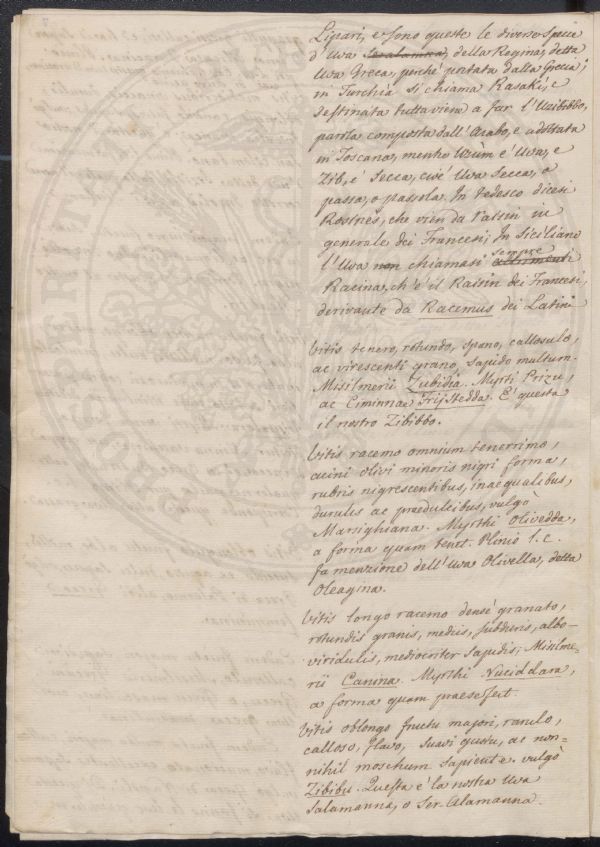 Lipari, e sono queste le diverse specie
d'Uva Seralamana, della Regina, detta
Uva Greca, perchè portata dalla Grecia;
in Turchia si chiama Rasaki, e
destinata tuttaviera a far l'Uzibibbo,
parola composta dall'Arabo, e adottata
in Toscana, mentre Uzùm è Uva, e
Zib, è secca, cioè Uva secca, o
passa, o passola. In tedesco dicesi
Rosines, che vien da raisin in
generale dei Francesi; In Siciliano
l'Uva non chiamasi sempre altrimenti
Racina, ch'è il Raisin dei Francesi,
derivante da Racemus dei Latini
Vitis tenero, rotundo, spano, callosulo,
ac virescenti grano, sapido multum.
Misilmerii Zubidia. Myrti Prizu,
ac Ciminnae Trijstedda. E' questa
il nostro Zibibbo.
Vitis racemo omnium tenerrimo,
acini olivi minoris nigri forma,
rubris nigrescentibus, inaequalibus,
durulis ac praedulcibus, vulgò
Marsighiana. Myrthi Olivedda,
a forma quam tenet. Plinio l.c.
fa menzione dell'Uva Olivella, detta
Oleagina.
Vitis longo racemo densè granato,
rotundis granis, mediis, subduris, albo-
viridulis, mediocriter sapidis; Misilme-
rii Canina. Myrthi Nuciddara,
a forma quam praesefert.
Vitis oblongo fructu majori, rarulo,
calloso, flavo, suavi gustu, ac non-
nihil moschum sapiente. vulgò
Zibibu. Questa è la nostra Uva
Salamanna, o Ser-Alamanna.